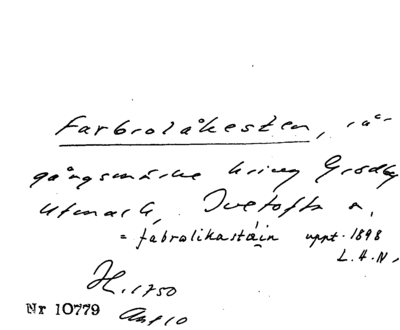 Farbrolåkesten, rå-
gångsmärke kring Grödby
utmark, Ivetofta s.
= fabralikastäin uppt. 1898
L.A.N.
H. 1750
Akt 10
Nr 10779